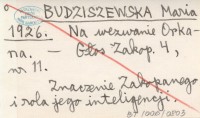 BUDZISZEWSKA Maria
1926. Na wezwanie Orka-
na. — Głos Zakop. 4,
nr 11.
Znaczenie Zakopanego
i rola jego inteligencji.